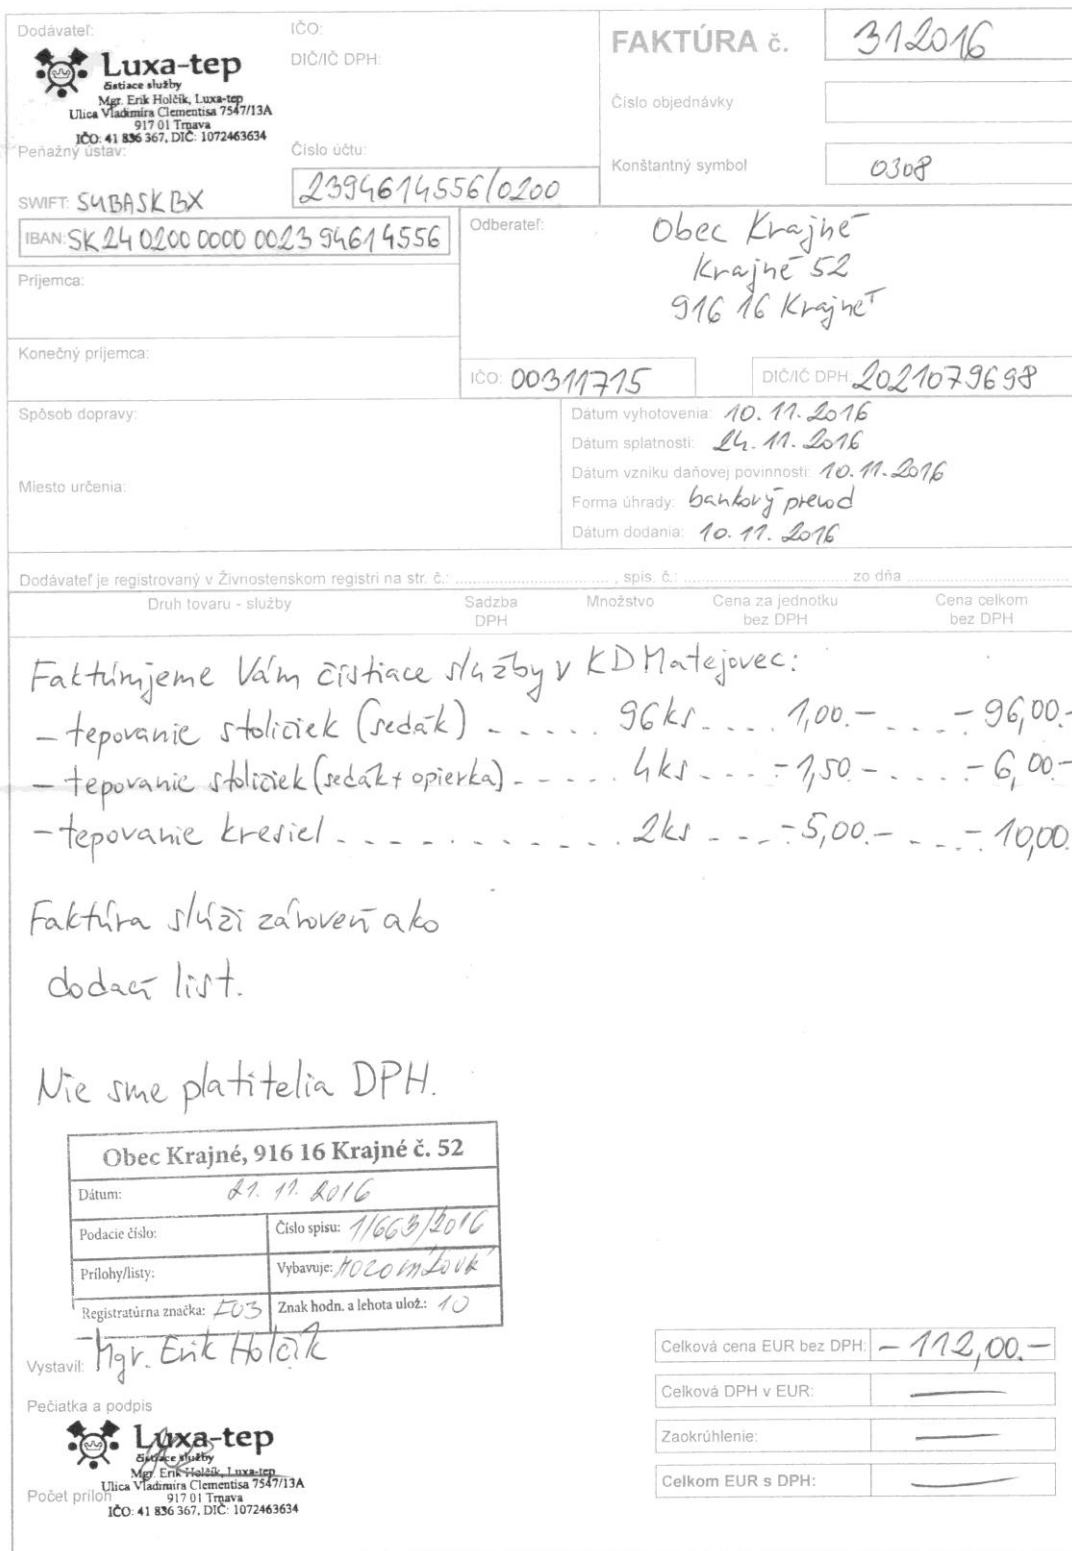 Dodávateľ:
Luxa-tep
čistiace služby
Mgr. Erik Holčík, Luxa-tep
Ulica Vladimíra Clementisa 7547/13A
917 01 Trnava
IČO: 41 836 367, DIČ: 1072463634
IČO:
DIČ/IČ DPH:
FAKTÚRA č. 312016
Číslo objednávky
Konštantný symbol 0308
Peňažný ústav:
Číslo účtu:
2394614556/0200
SWIFT: SUBASKBX
IBAN: SK 24 0200 0000 0023 9461 4556
Príjemca:
Konečný príjemca:
Odberateľ:
Obec Krajné
Krajné 52
916 16 Krajné
IČO: 00311715
DIČ/IČ DPH: 2021079698
Spôsob dopravy:
Miesto určenia:
Dátum vyhotovenia: 10. 11. 2016
Dátum splatnosti: 24. 11. 2016
Dátum vzniku daňovej povinnosti: 10. 11. 2016
Forma úhrady: bankový prevod
Dátum dodania: 10. 11. 2016
Dodávateľ je registrovaný v Živnostenskom registri na str. č.: , spis. č.: zo dňa
Druh tovaru - služby Sadzba DPH Množstvo Cena za jednotku bez DPH Cena celkom bez DPH
Faktúrujeme Vám čistiace služby v KD Matejovec:
- tepovanie stoličiek (sedák) - . . . . . 96 ks . . . . 1,00.- . . . - 96,00.-
- tepovanie stoličiek (sedák + opierka) - . . . . 4 ks . - - . - 1,50 - . . . . - 6,00-
- tepovanie kresiel - - - . - . . . . . - - . 2 ks - - . - 5,00.- - . - . - 10,00.
Faktúra slúži zároveň ako
dodací list.
Nie sme platitelia DPH.
Obec Krajné, 916 16 Krajné č. 52
Dátum: 21. 11. 2016
Podacie číslo:
Číslo spisu: 1/663/2016
Prílohy/listy:
Vybavuje:
Registratúrna značka:
Znak hodn. a lehota ulož.: 10
Vystavil: Mgr. Erik Holčík
Pečiatka a podpis
Luxa-tep
čistiace služby
Mgr. Erik Holčík, Luxa-tep
Ulica Vladimíra Clementisa 7547/13A
917 01 Trnava
IČO: 41 836 367, DIČ: 1072463634
Počet príloh
Celková cena EUR bez DPH: - 112,00.-
Celková DPH v EUR:
Zaokrúhlenie:
Celkom EUR s DPH: